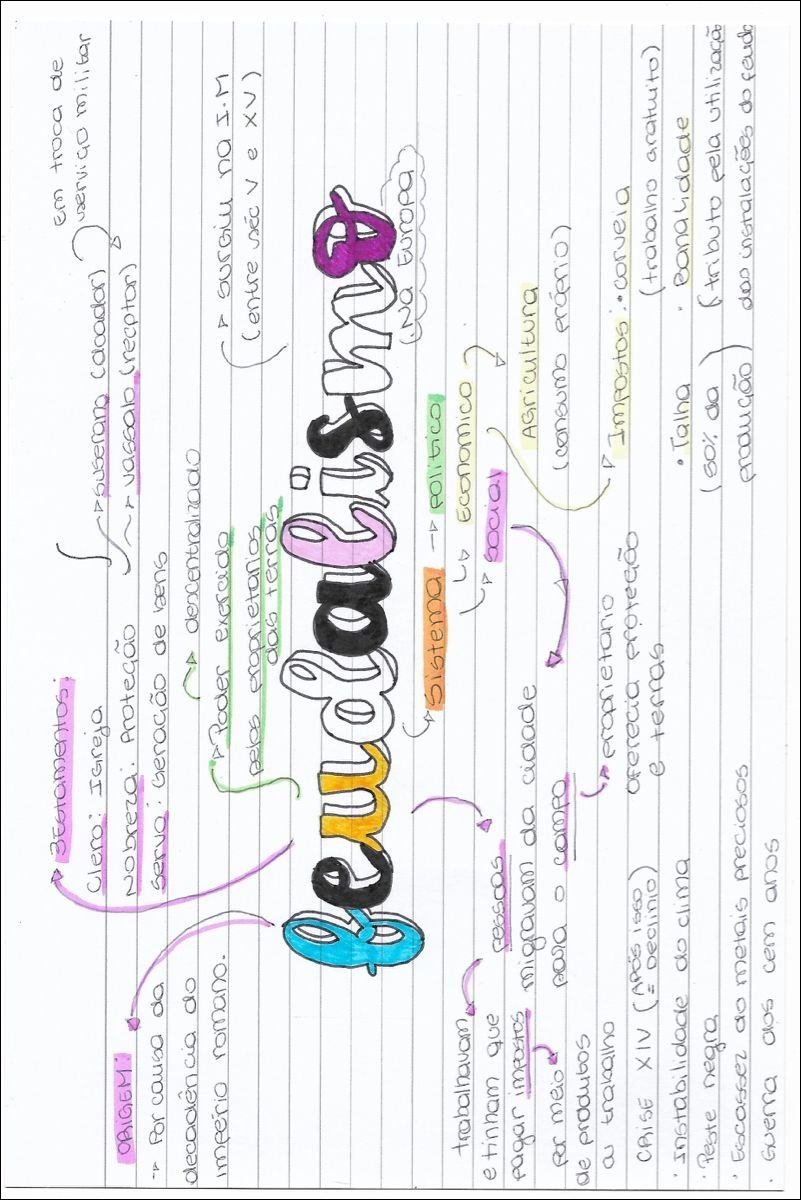 ORIGEM:
→ Por causa da
decadência do
império romano.
3 Estamentos:
Clero: Igreja
Nobreza: Proteção
Servo: Geração de bens
→ suserano (doador)
→ vassalo (receptor)
Em troca de
serviço militar
→ descentralizado
→ Poder exercido
pelos proprietários
das terras
→ surgiu na I.M
(entre séc V e XV)
feudalismo
(Na Europa)
→ Sistema → político
→ Econômico
→ social
Agricultura
(consumo próprio)
→ Impostos: • corveia
(trabalho gratuito)
• Talha
(50% da
produção)
• Banalidade
(tributo pela utilização
das instalações do feudo
pessoas
migravam da cidade
para o campo
→ proprietário
oferecia proteção
e terras
trabalhavam
e tinham que
pagar impostos
por meio
de produtos
ou trabalho
CRISE XIV (APÓS ISSO
= DECLÍNIO)
• Instabilidade do clima
• Peste negra
• Escassez do metais preciosos
• Guerra dos cem anos